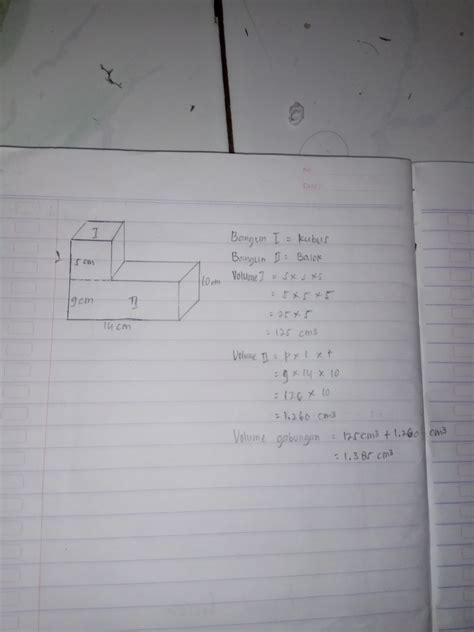 No:
Date:
I
5 cm
9 cm
II
10 cm
14 cm
Bangun I = Kubus
Bangun II = Balok
Volume I = s x s x s
= 5 x 5 x 5
= 25 x 5
= 125 cm³
Volume II = p x l x t
= 9 x 14 x 10
= 126 x 10
= 1.260 cm³
Volume gabungan = 125 cm³ + 1.260 cm³
= 1.385 cm³